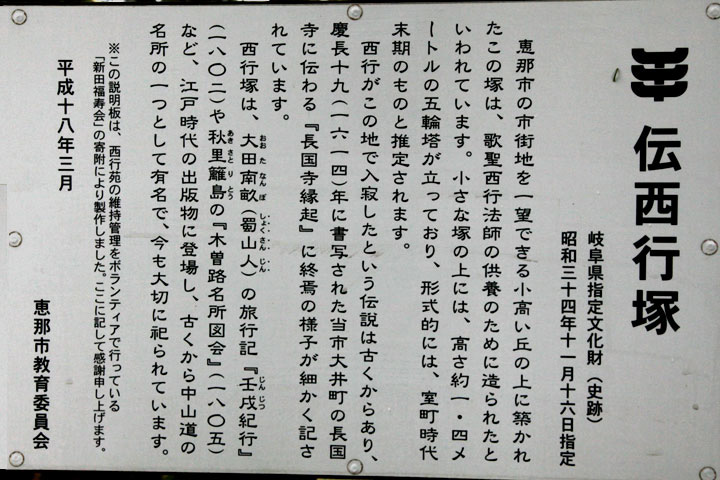 伝西行塚
岐阜県指定文化財（史跡）
昭和三十四年十一月十六日指定
恵那市の市街地を一望できる小高い丘の上に築かれ
たこの塚は、歌聖西行法師の供養のために造られたと
いわれています。小さな塚の上には、高さ約一・四メ
ートルの五輪塔が立っており、形式的には、室町時代
末期のものと推定されます。
西行がこの地で入寂したという伝説は古くからあり、
慶長十九（一六一四）年に書写された当市大井町の長国
寺に伝わる『長国寺縁起』に終焉の様子が細かく記さ
れています。
西行塚は、大田南畝（蜀山人）の旅行記『壬戌紀行』
おおたなんぽ しょくさんじん じんじつ
（一八〇二）や秋里籬島の『木曽路名所図会』（一八〇五）
あきさとりとう
など、江戸時代の出版物に登場し、古くから中山道の
名所の一つとして有名で、今も大切に祀られています。
※この説明板は、西行苑の維持管理をボランティアで行っている
「新田福寿会」の寄附により製作しました。ここに記して感謝申し上げます。
平成十八年三月
恵那市教育委員会